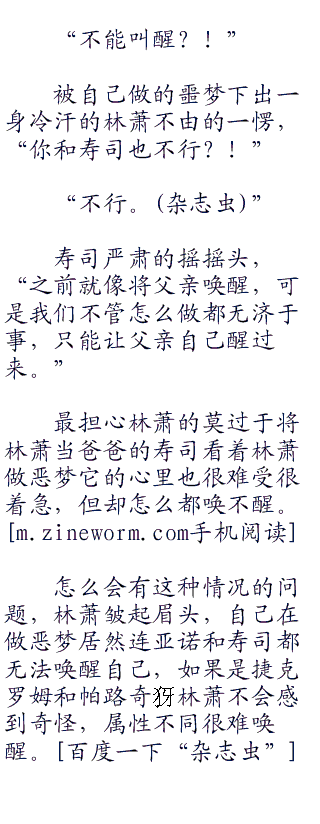 “不能叫醒？！”
被自己做的噩梦下出一
身冷汗的林萧不由的一愣，
“你和寿司也不行？！”
“不行。(杂志虫)”
寿司严肃的摇摇头，
“之前就像将父亲唤醒，可
是我们不管怎么做都无济于
事，只能让父亲自己醒过
来。”
最担心林萧的莫过于将
林萧当爸爸的寿司看着林萧
做恶梦它的心里也很难受很
着急，但却怎么都唤不醒。
[m.zineworm.com手机阅读]
怎么会有这种情况的问
题，林萧皱起眉头，自己在
做恶梦居然连亚诺和寿司都
无法唤醒自己，如果是捷克
罗姆和帕路奇犽林萧不会感
到奇怪，属性不同很难唤
醒。[百度一下“杂志虫”]